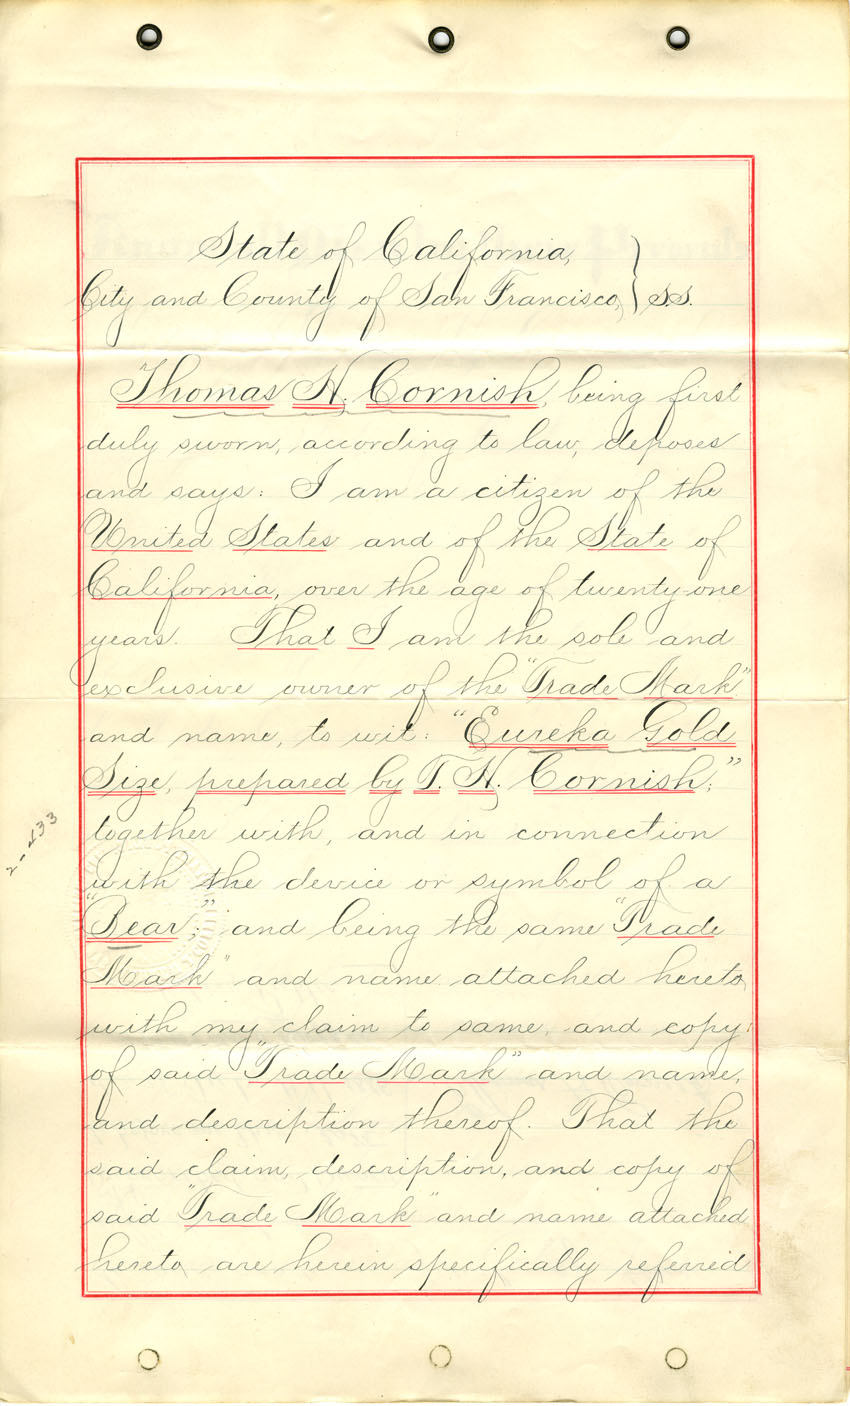 State of California,
City and County of San Francisco, } S.S.
Thomas H. Cornish, being first
duly sworn, according to law, deposes
and says: I am a citizen of the
United States and of the State of
California, over the age of twenty-one
years. That I am the sole and
exclusive owner of the "Trade Mark"
and name, to wit: "Eureka Gold
Size, prepared by T. H. Cornish;"
together with, and in connection
with the device or symbol of a
"Bear;" and being the same "Trade
Mark" and name attached hereto,
with my claim to same, and copy
of said "Trade Mark" and name,
and description thereof. That the
said claim, description, and copy of
said "Trade Mark" and name attached
hereto, are herein specifically referred
2-433